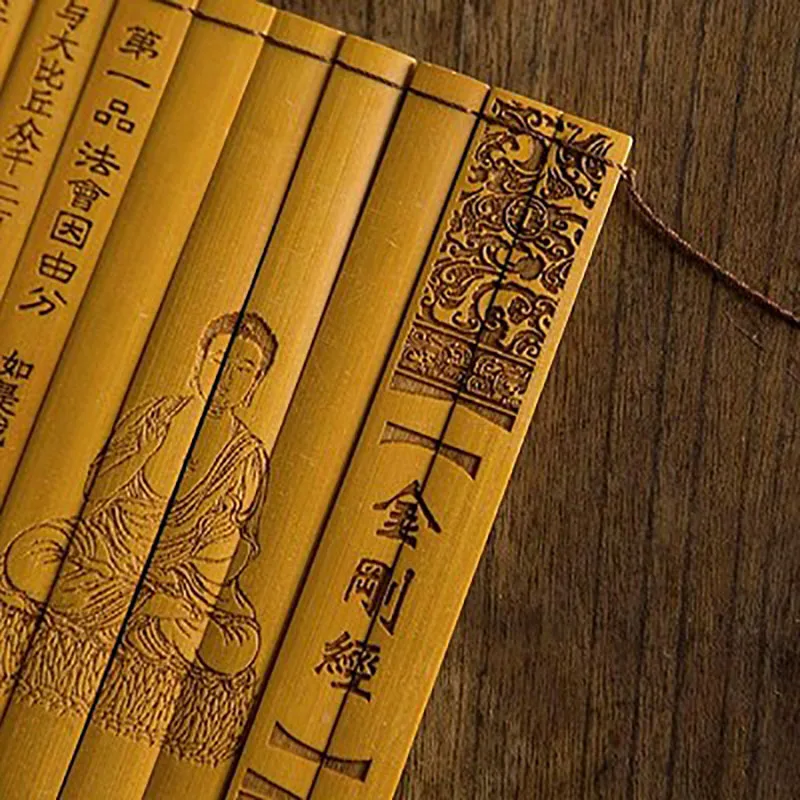 金剛經
第一品法會因由分
如是我
与大比丘众千二百